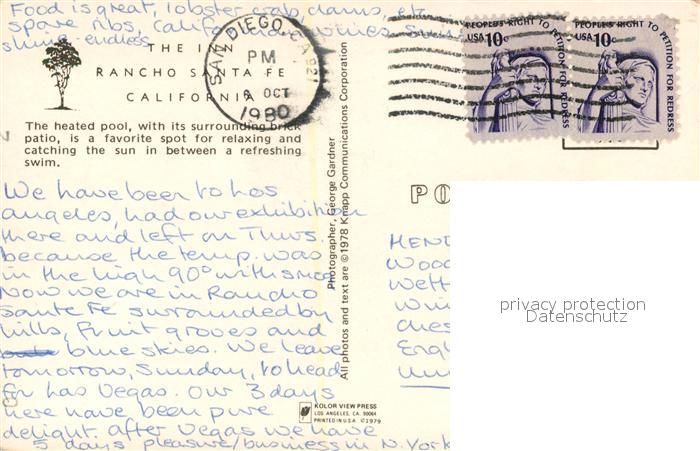 Food is great, lobster, crab, clams, etc
spare ribs, californian wines, sun
shine endless
THE INN
RANCHO SANTA FE
CALIFORNIA
The heated pool, with its surrounding brick
patio, is a favorite spot for relaxing and
catching the sun in between a refreshing
swim.
SAN DIEGO, CA 921
PM
6 OCT
1980
PEOPLE'S RIGHT TO PETITION FOR REDRESS
USA 10c
PEOPLE'S RIGHT TO PETITION FOR REDRESS
USA 10c
We have been to Los
angeles, had our exhibition
there and left on Thurs.
because the temp. was
in the high 90° with smog
Now we are in Rancho
Sante Fe surrounded by
hills, fruit groves and
blue skies. We leave
tomorrow, Sunday, to head
for Las Vegas. Our 3 days
here have been pure
delight. After Vegas we have
5 days pleasure/business in N. York
Photographer, George Gardner
All photos and text are ©1978 Knapp Communications Corporation
KOLOR VIEW PRESS
LOS ANGELES, CA. 90064
PRINTED IN U.S.A. ©1979
PO
HEND
Wood
Wett
Win
Ches
Engl
privacy protection
Datenschutz